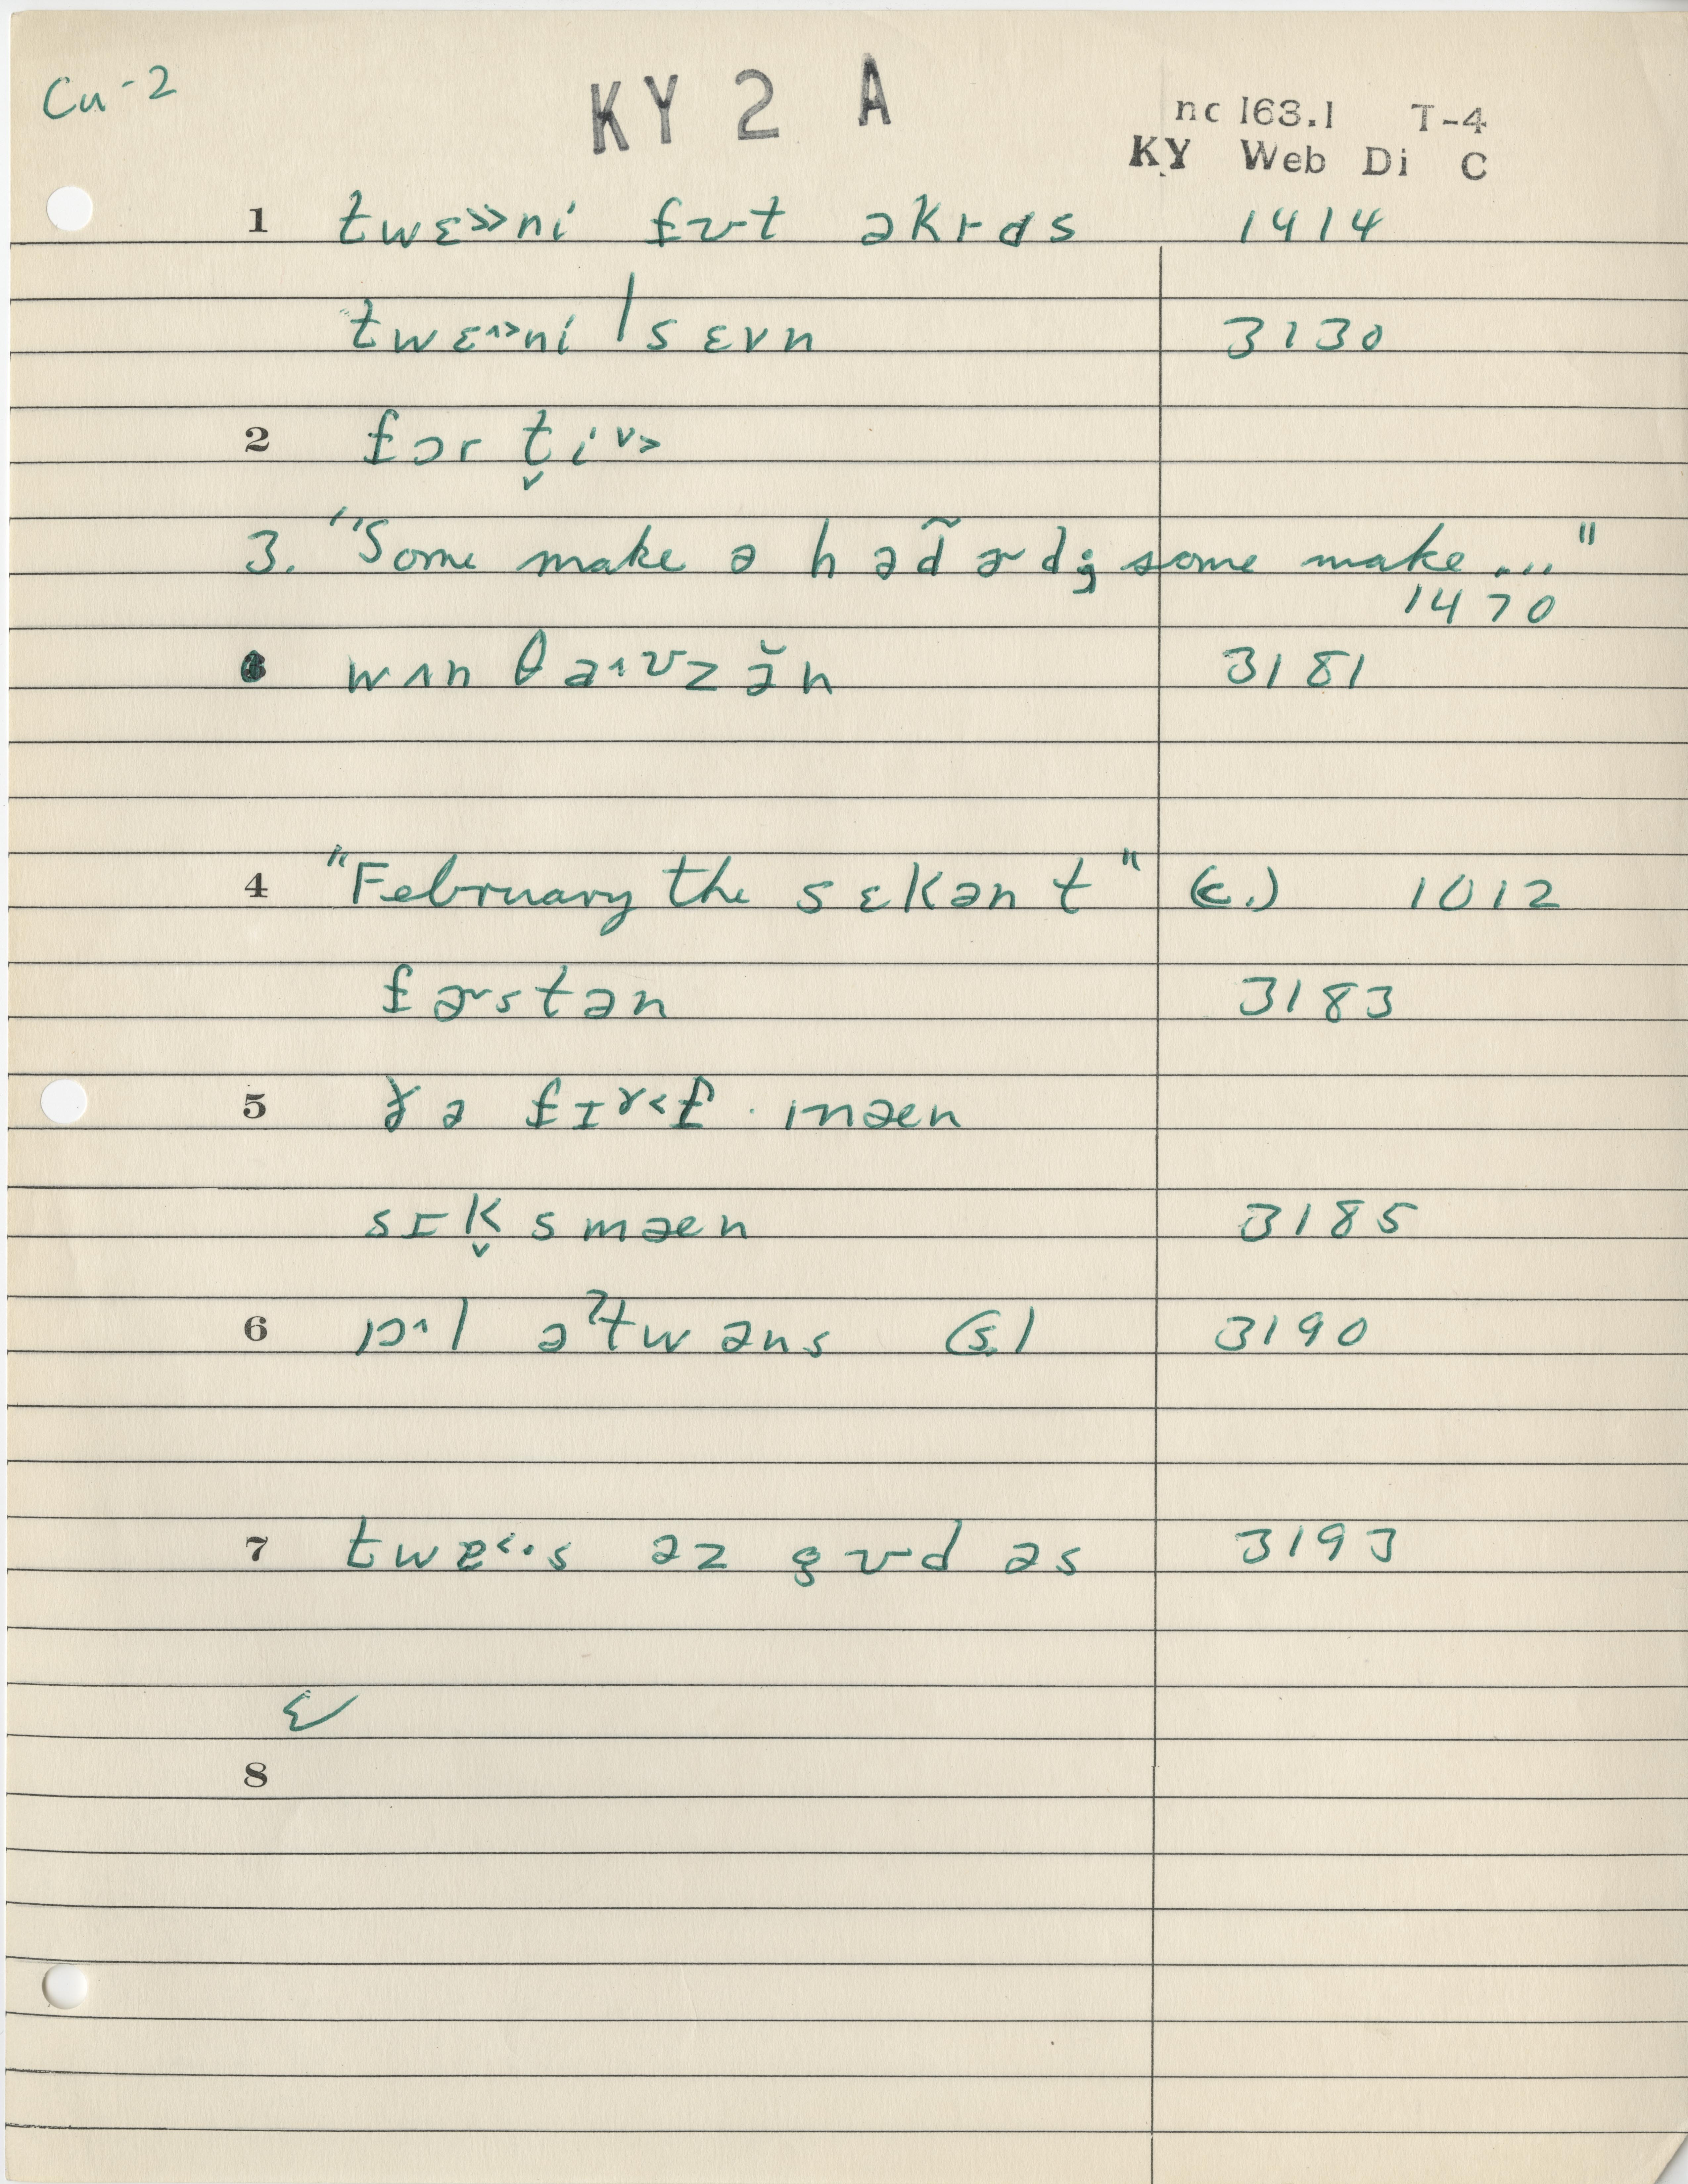 Cu-2
KY 2 A
nc 163.1 T-4
KY Web Di C
1 twɛ>>ni fʊt əkrɑs 1414
twɛ^>ni |sɛvn 3130
2 fɔr t̬i˅>
3. "Some make ə həd̃ɚdʒ some make ..."
1470
wʌn θaʊzə̆n 3181
4 "February the sɛkənt" (c.) 1012
fɚstən 3183
5
sɪk̬smæn 3185
6 ɔ^l əʔtwəns (s.) 3190
7 əz gʊd əs 3193
8